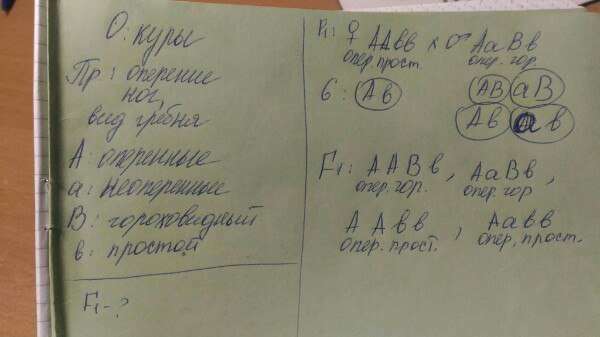 О: куры
Пр: оперение
ног,
вид гребня
А: оперенные
а: неоперенные
В: гороховидный
в: простой
F₁ - ?
P₁: ♀ ААвв х ♂ АаВв
опер. прост. опер. гор.
G: Ав АВ аВ
Ав ав
F₁: ААВв, АаВв,
опер. гор. опер. гор
ААвв, Аавв
опер. прост. опер. прост.